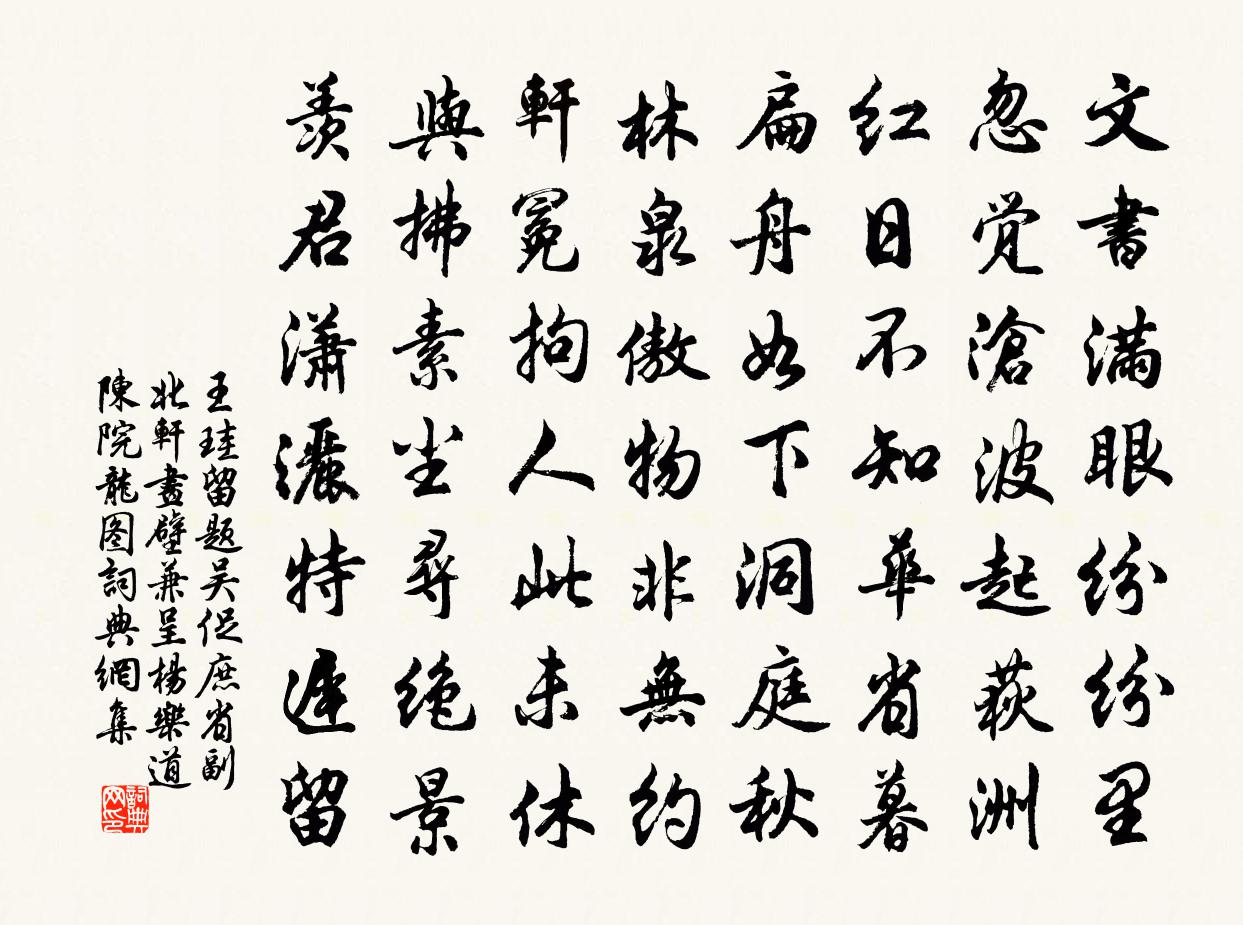 文書滿眼紛紛里
忽觉滄波起荻洲
红日不知華省暮
扁舟如下洞庭秋
林泉傲物非無約
軒冕拘人此未休
與拂素尘尋绝景
羨君瀟灑特遲留
王珪留题吴促庶省副
北軒畫壁兼呈楊樂道
陳院龍图詞典網集
詞典网印